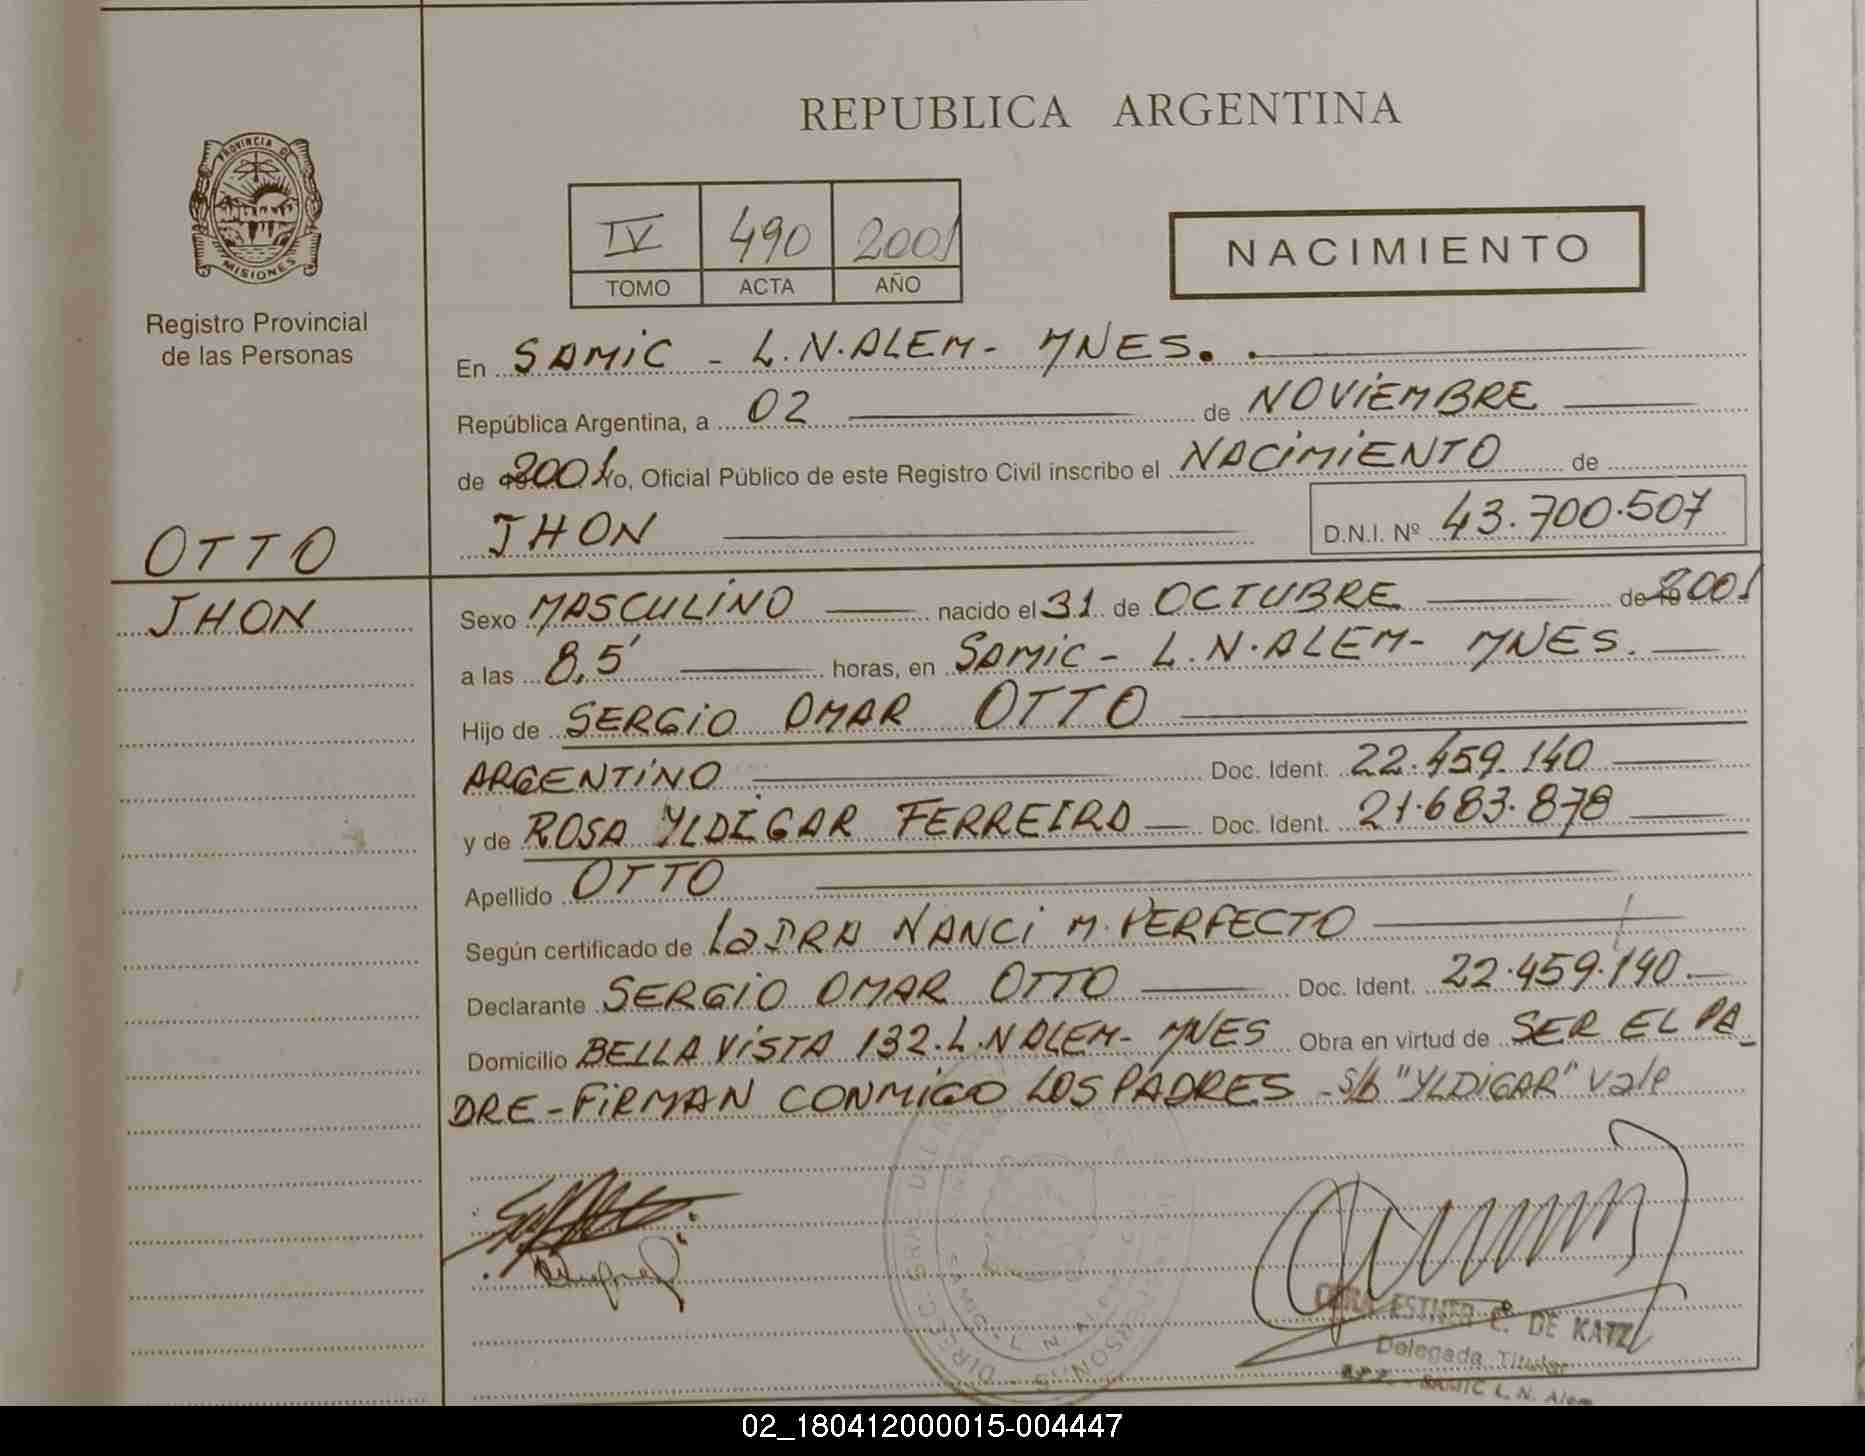 REPUBLICA ARGENTINA
PROVINCIA DE
MISIONES
Registro Provincial
de las Personas
IV 490 2001
TOMO ACTA AÑO
NACIMIENTO
En SAMiC - L.N.ALEM- MNES.
República Argentina, a 02 de NOViEMBRE
de 2001 Yo, Oficial Público de este Registro Civil inscribo el NACiMiENTO de
JHON D.N.I. Nº 43.700.507
OTTO
JHON
Sexo MASCULiNO nacido el 31 de OCTUBRE de 2001
a las 8,5' horas, en SAMiC - L.N.ALEM- MNES.
Hijo de SERGiO OMAR OTTO
ARGENTiNO Doc. Ident. 22.459.140
y de ROSA YLDiGAR FERREIRA Doc. Ident. 21.683.878
Apellido OTTO
Según certificado de La DRA NANCi M. PERFECTO
Declarante SERGiO OMAR OTTO Doc. Ident. 22.459.140
Domicilio BELLA ViSTA 132.L.N ALEM- MNES Obra en virtud de SER EL PA
DRE-FiRMAN CONMiGO LOS PADRES - S/b "YLDiGAR" Vale
ESTHER E. DE KATZ
Delegada Titular
SAMIC L. N. Alem
02_180412000015-004447